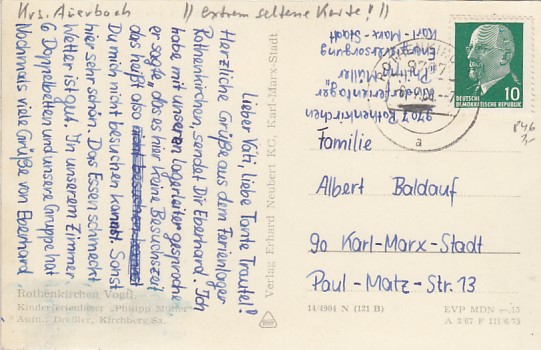 Krs. Auerbach
!! extrem seltene Karte! !!
Lieber Vati, liebe Tante Trautel!
Herzliche Grüße aus dem Ferienlager
Rothenkirchen, sendet Dir Eberhard. Ich
habe mit unseren Lagerleiter gesproche
er sagte, das es hier keine Besuchszeit
das heißt also
Du mich nicht besuchen kannst. Sonst
hier sehr schön. Das Essen schmeckt,
Wetter ist gut. In unserem Zimmer
6 Doppelbetten und unsere Gruppe hat
Nochmals viele Grüße von Eberhard
Rothenkirchen Vogtl.
Kinderferienlager „Philipp Müller“
Aufn.: Dreßler, Kirchberg/Sa.
Verlag Erhard Neubert KG, Karl-Marx-Stadt
9707 Rothenkirchen
Kinderferienlager
„Philipp Müller“
Energieversorgung
Karl-Marx-Stadt
a
DEUTSCHE
DEMOKRATISCHE REPUBLIK
10
Familie
Albert Baldauf
90 Karl-Marx-Stadt
Paul-Matz-Str. 13
14/4904 N (121 B)
EVP MDN –,15